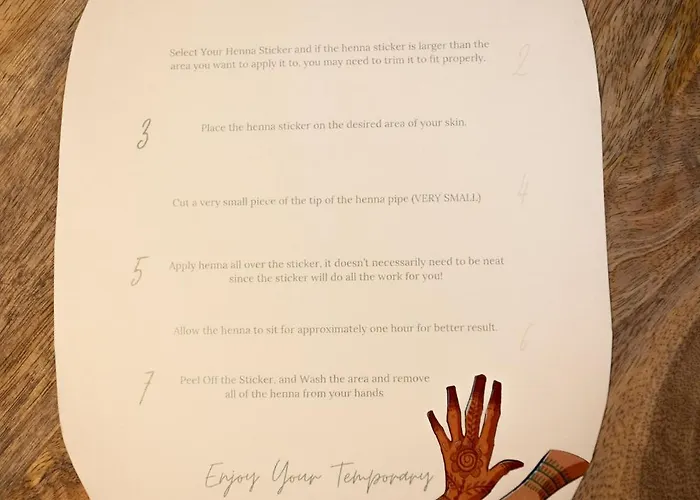 Select Your Henna Sticker and if the henna sticker is larger than the
area you want to apply it to, you may need to trim it to fit properly.
2
3
Place the henna sticker on the desired area of your skin.
Cut a very small piece of the tip of the henna pipe (VERY SMALL)
4
5
Apply henna all over the sticker, it doesn't necessarily need to be neat
since the sticker will do all the work for you!
Allow the henna to sit for approximately one hour for better result.
6
7
Peel Off the Sticker, and Wash the area and remove
all of the henna from your hands
Enjoy Your Temporary